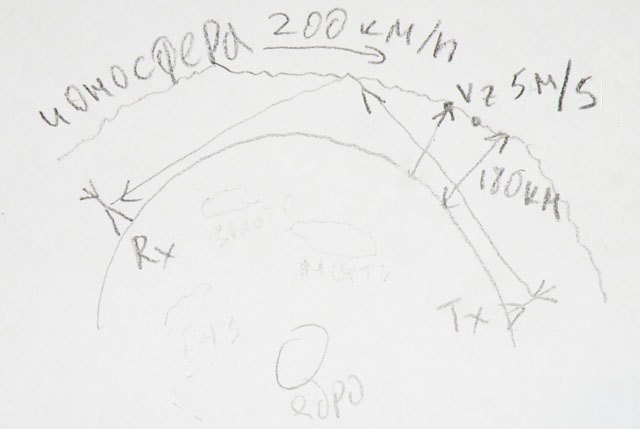 ионосфера 200 км/ч
Vz 5 м/s
180 км
Rx
Tx
золото
нефть
газ
ядро